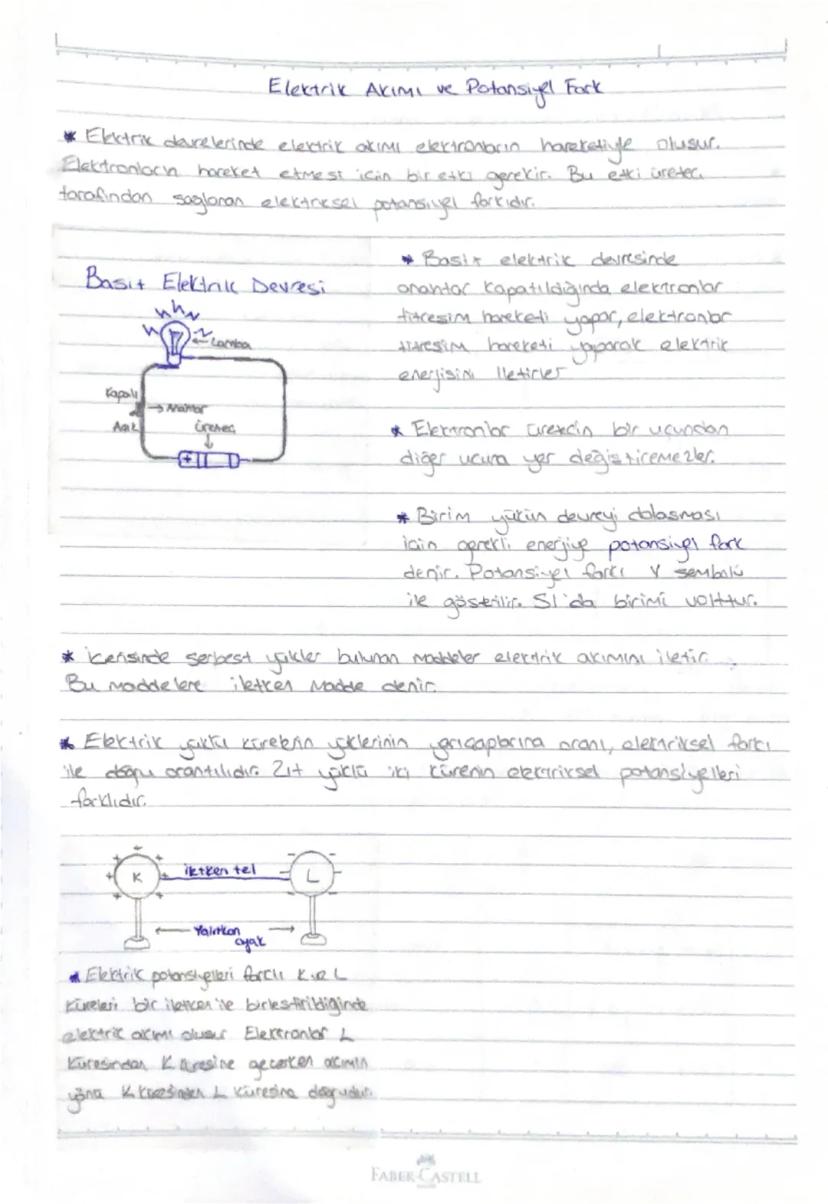 Elektrik Akımı ve Potansiyel Fark
* Elektrik devrelerinde elektrik akımı elektronların hareketiyle oluşur.
Elektronların hareket etmesi için bir etki gerekir. Bu etki üreteç
tarafından sağlanan elektriksel potansiyel farkıdır.
Basit Elektrik Devresi
Lamba
Kapalı
Anahtar
Açık
Üreteç
+
* Basit elektrik devresinde
anahtar kapatıldığında elektronlar
titreşim hareketi yapar, elektronlar
titreşim hareketi yaparak elektrik
enerjisini iletirler
* Elektronlar üretecin bir ucundan
diğer ucuna yer değiştiremezler.
* Birim yükün devreyi dolaşması
için gerekli enerjiye potansiyel fark
denir. Potansiyel farkı V sembolü
ile gösterilir. SI'da birimi volttur.
* İçerisinde serbest yükler bulunan maddeler elektrik akımını iletir.
Bu maddelere iletken madde denir.
* Elektrik yüklü kürelerin yüklerinin yarıçaplarına oranı, elektriksel farkı
ile doğru orantılıdır. Zıt yüklü iki kürenin elektriksel potansiyelleri
farklıdır.
K
iletken tel
L
Yalıtkan
ayak
* Elektrik potansiyelleri farklı K ve L
küreleri bir iletken ile birleştirildiğinde
elektrik akımı oluşur Elektronlar L
küresinden K küresine geçerken akımın
yönü K küresinden L küresine doğrudur.
FABER-CASTELL